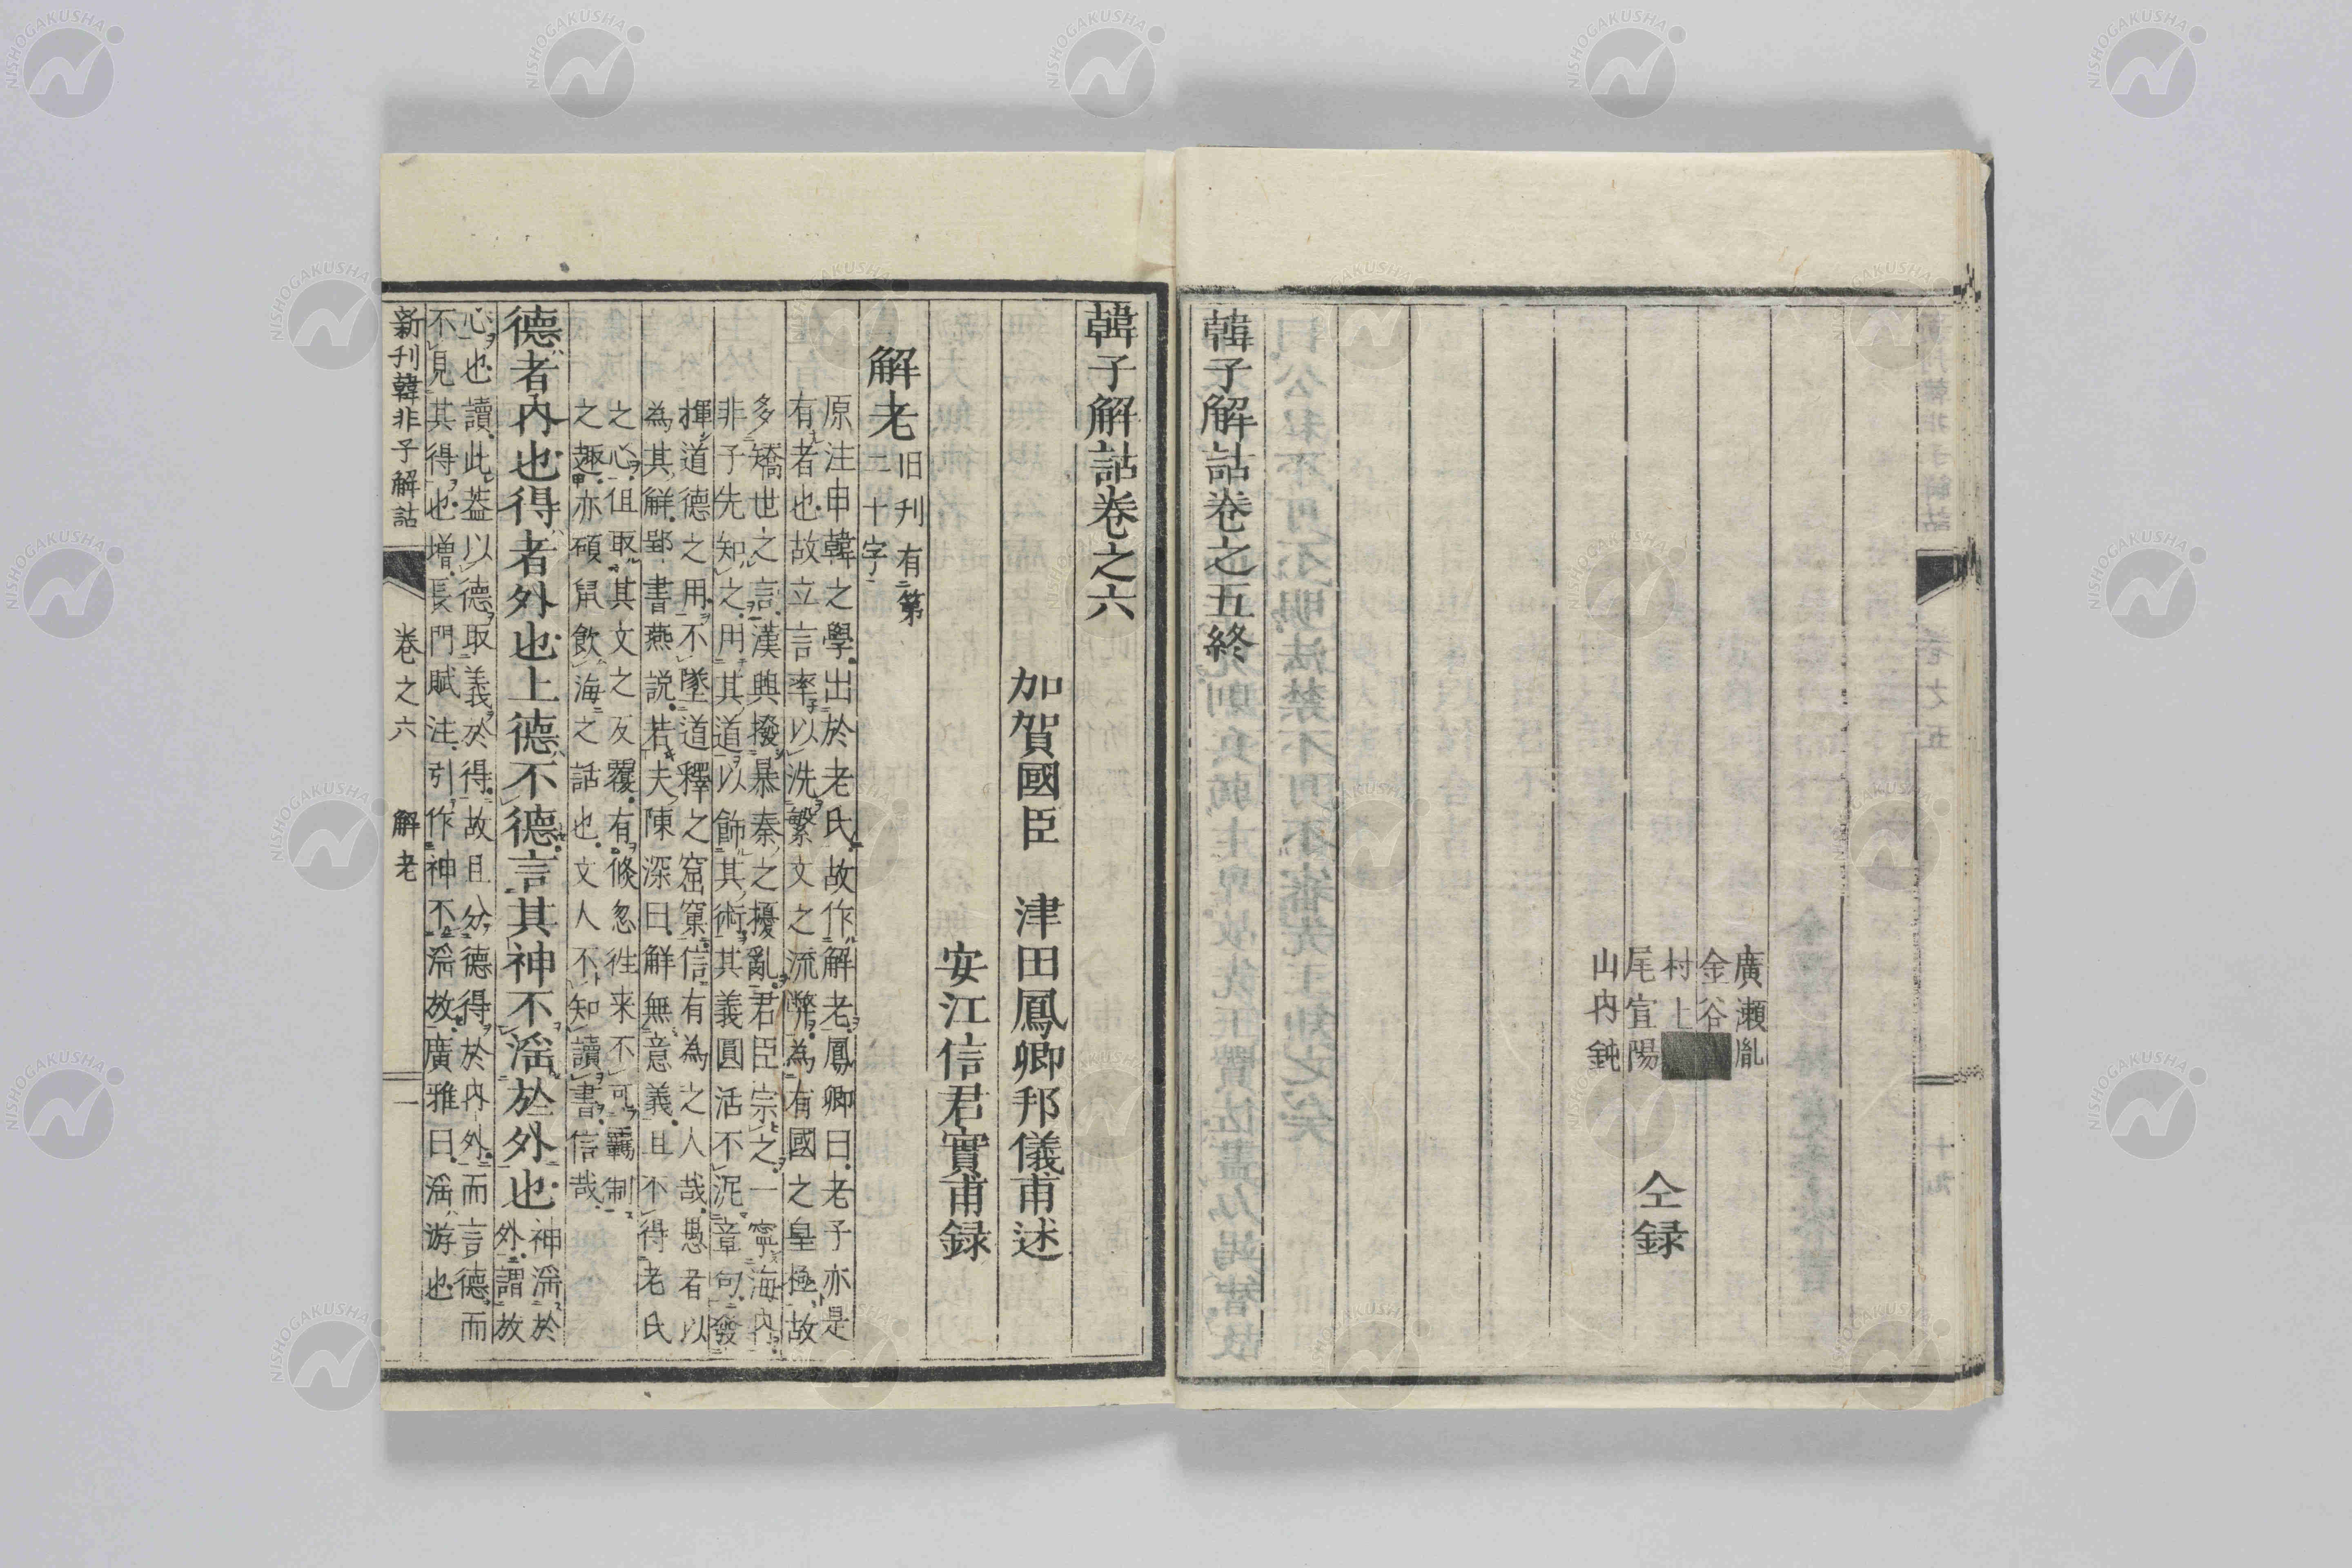 廣瀬胤
金谷
村上
尾宜陽
山内鈍
仝録
韓子解詁卷之五終
韓子解詁卷之六
加賀國臣 津田鳳卿邦儀甫述
安江信君實甫録
解老 旧刋有第
二十字
原注申韓之學出於老氏故作解老鳳卿曰老子亦是
有者也故立言率以洗繁文之流弊為有國之皇極故
多矯世之言漢興撥暴秦之擾亂君臣宗之一寧海内
非子先知之用其道以飾其術其義圓活不泥章句發
揮道德之用不墜道釋之窟窠信有為之人哉愚者以
為其解郢書燕説若夫陳深曰解無意義且不得老氏
之心但取其文之反覆有倏忽徃来不可羈制
之趣亦碩鼠飲海之話也文人不知讀書信哉
德者内也得者外也上德不德言其神不滛於外也 神滛於
外謂放
心也讀此葢以德取義於得故且分德得於内外而言德而
不見其得也增長門賦注引作神不滛放廣雅曰滛游也
新刋韓非子解詁 卷之六 解老 一